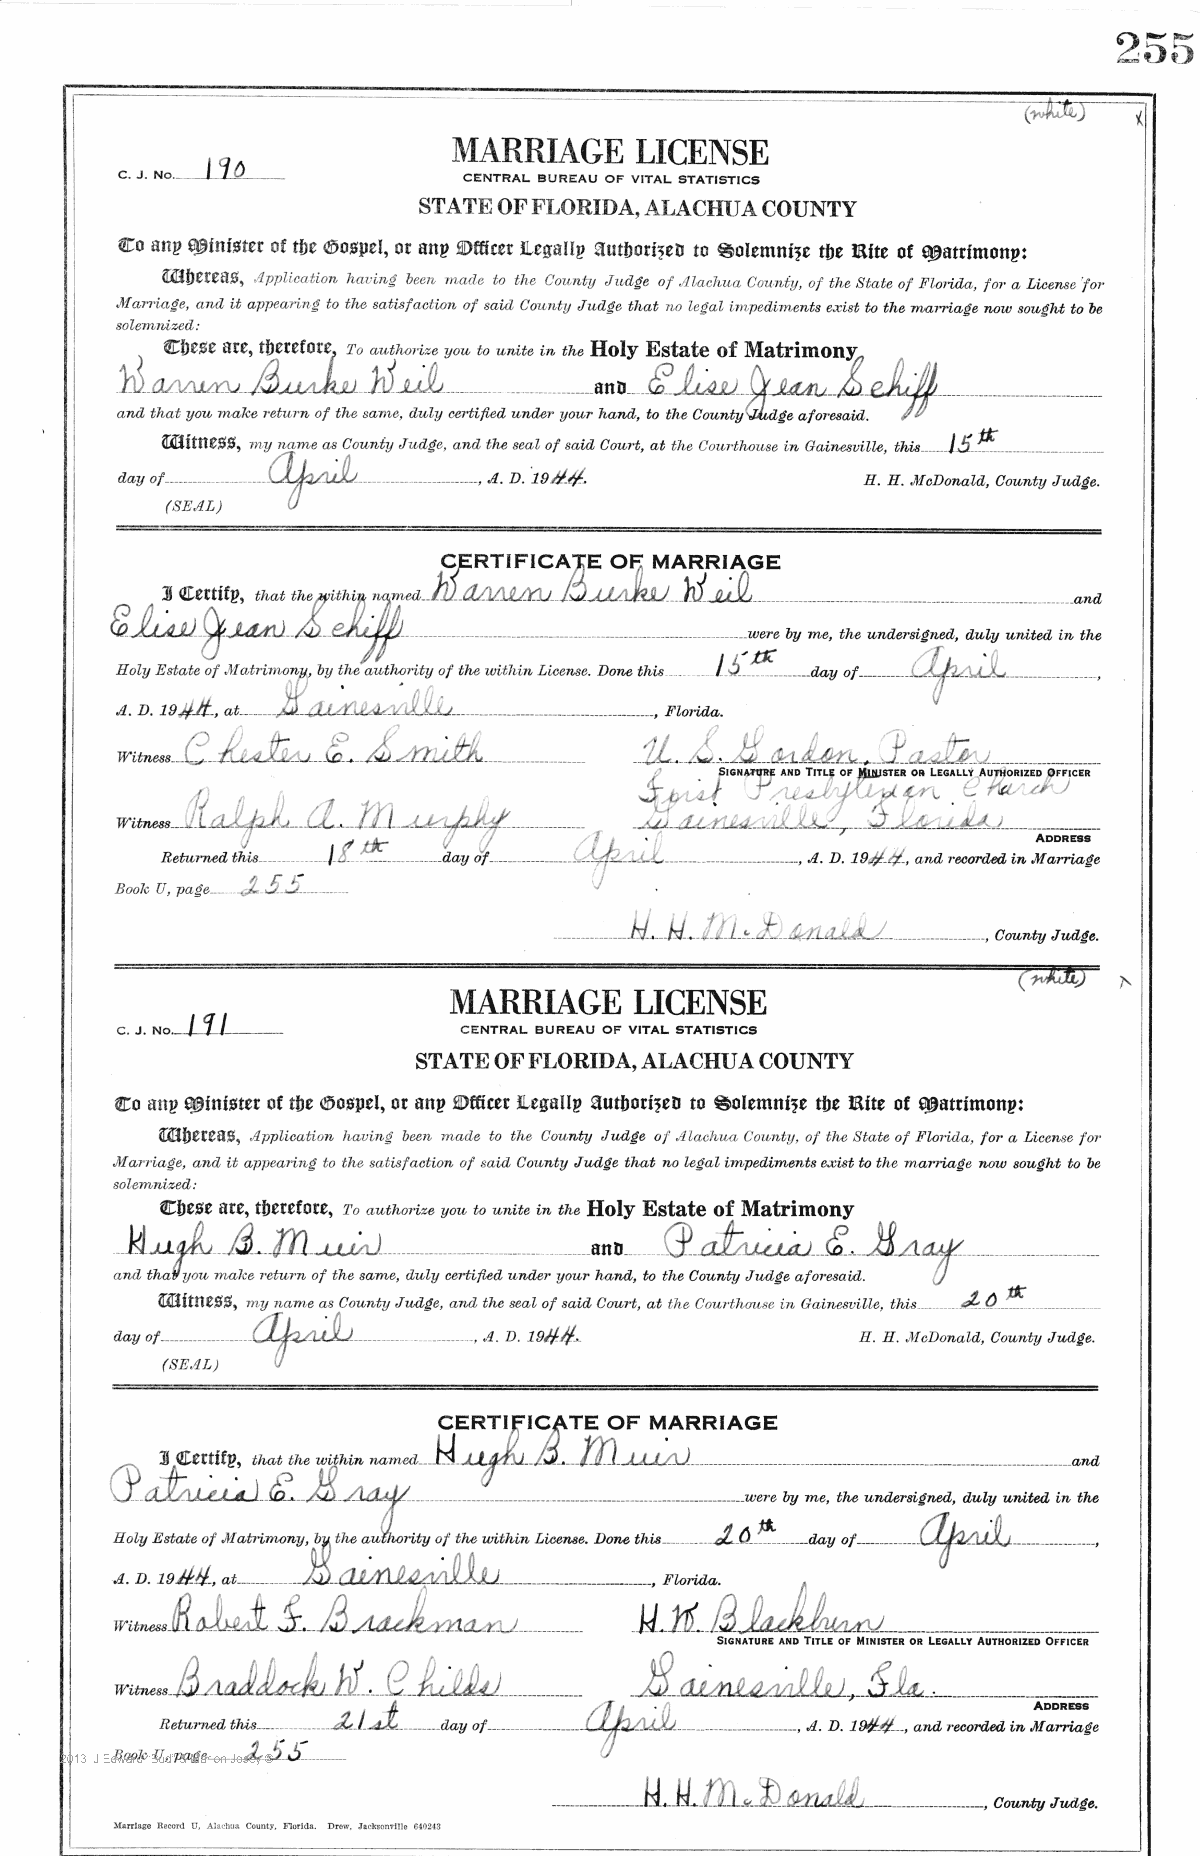 255
(white) x
MARRIAGE LICENSE
C. J. No. 190
CENTRAL BUREAU OF VITAL STATISTICS
STATE OF FLORIDA, ALACHUA COUNTY
To any Minister of the Gospel, or any Officer Legally Authorized to Solemnize the Rite of Matrimony:
Whereas, Application having been made to the County Judge of Alachua County, of the State of Florida, for a License for
Marriage, and it appearing to the satisfaction of said County Judge that no legal impediments exist to the marriage now sought to be
solemnized:
These are, therefore, To authorize you to unite in the Holy Estate of Matrimony
Warren Burke Weil and Elise Jean Schiff
and that you make return of the same, duly certified under your hand, to the County Judge aforesaid.
Witness, my name as County Judge, and the seal of said Court, at the Courthouse in Gainesville, this 15th
day of April, A. D. 1944. H. H. McDonald, County Judge.
(SEAL)
CERTIFICATE OF MARRIAGE
I Certify, that the within named Warren Burke Weil and
Elise Jean Schiff were by me, the undersigned, duly united in the
Holy Estate of Matrimony, by the authority of the within License. Done this 15th day of April,
A. D. 1944, at Gainesville, Florida.
Witness Chester E. Smith U. S. Gordon, Pastor
SIGNATURE AND TITLE OF MINISTER OR LEGALLY AUTHORIZED OFFICER
First Presbyterian Church
Witness Ralph A. Murphy Gainesville, Florida
ADDRESS
Returned this 18th day of April, A. D. 1944, and recorded in Marriage
Book U, page 255
H. H. McDonald, County Judge.
(white) x
MARRIAGE LICENSE
C. J. No. 191
CENTRAL BUREAU OF VITAL STATISTICS
STATE OF FLORIDA, ALACHUA COUNTY
To any Minister of the Gospel, or any Officer Legally Authorized to Solemnize the Rite of Matrimony:
Whereas, Application having been made to the County Judge of Alachua County, of the State of Florida, for a License for
Marriage, and it appearing to the satisfaction of said County Judge that no legal impediments exist to the marriage now sought to be
solemnized:
These are, therefore, To authorize you to unite in the Holy Estate of Matrimony
Hugh B. Muir and Patricia E. Gray
and that you make return of the same, duly certified under your hand, to the County Judge aforesaid.
Witness, my name as County Judge, and the seal of said Court, at the Courthouse in Gainesville, this 20th
day of April, A. D. 1944. H. H. McDonald, County Judge.
(SEAL)
CERTIFICATE OF MARRIAGE
I Certify, that the within named Hugh B. Muir and
Patricia E. Gray were by me, the undersigned, duly united in the
Holy Estate of Matrimony, by the authority of the within License. Done this 20th day of April,
A. D. 1944, at Gainesville, Florida.
Witness Robert F. Brackman H. W. Blackburn
SIGNATURE AND TITLE OF MINISTER OR LEGALLY AUTHORIZED OFFICER
Witness Braddock W. Childs Gainesville, Fla.
ADDRESS
Returned this 21st day of April, A. D. 1944, and recorded in Marriage
Book U, page 255
2013 J Edward
H. H. McDonald, County Judge.
Marriage Record U, Alachua County, Florida. Drew, Jacksonville 640243